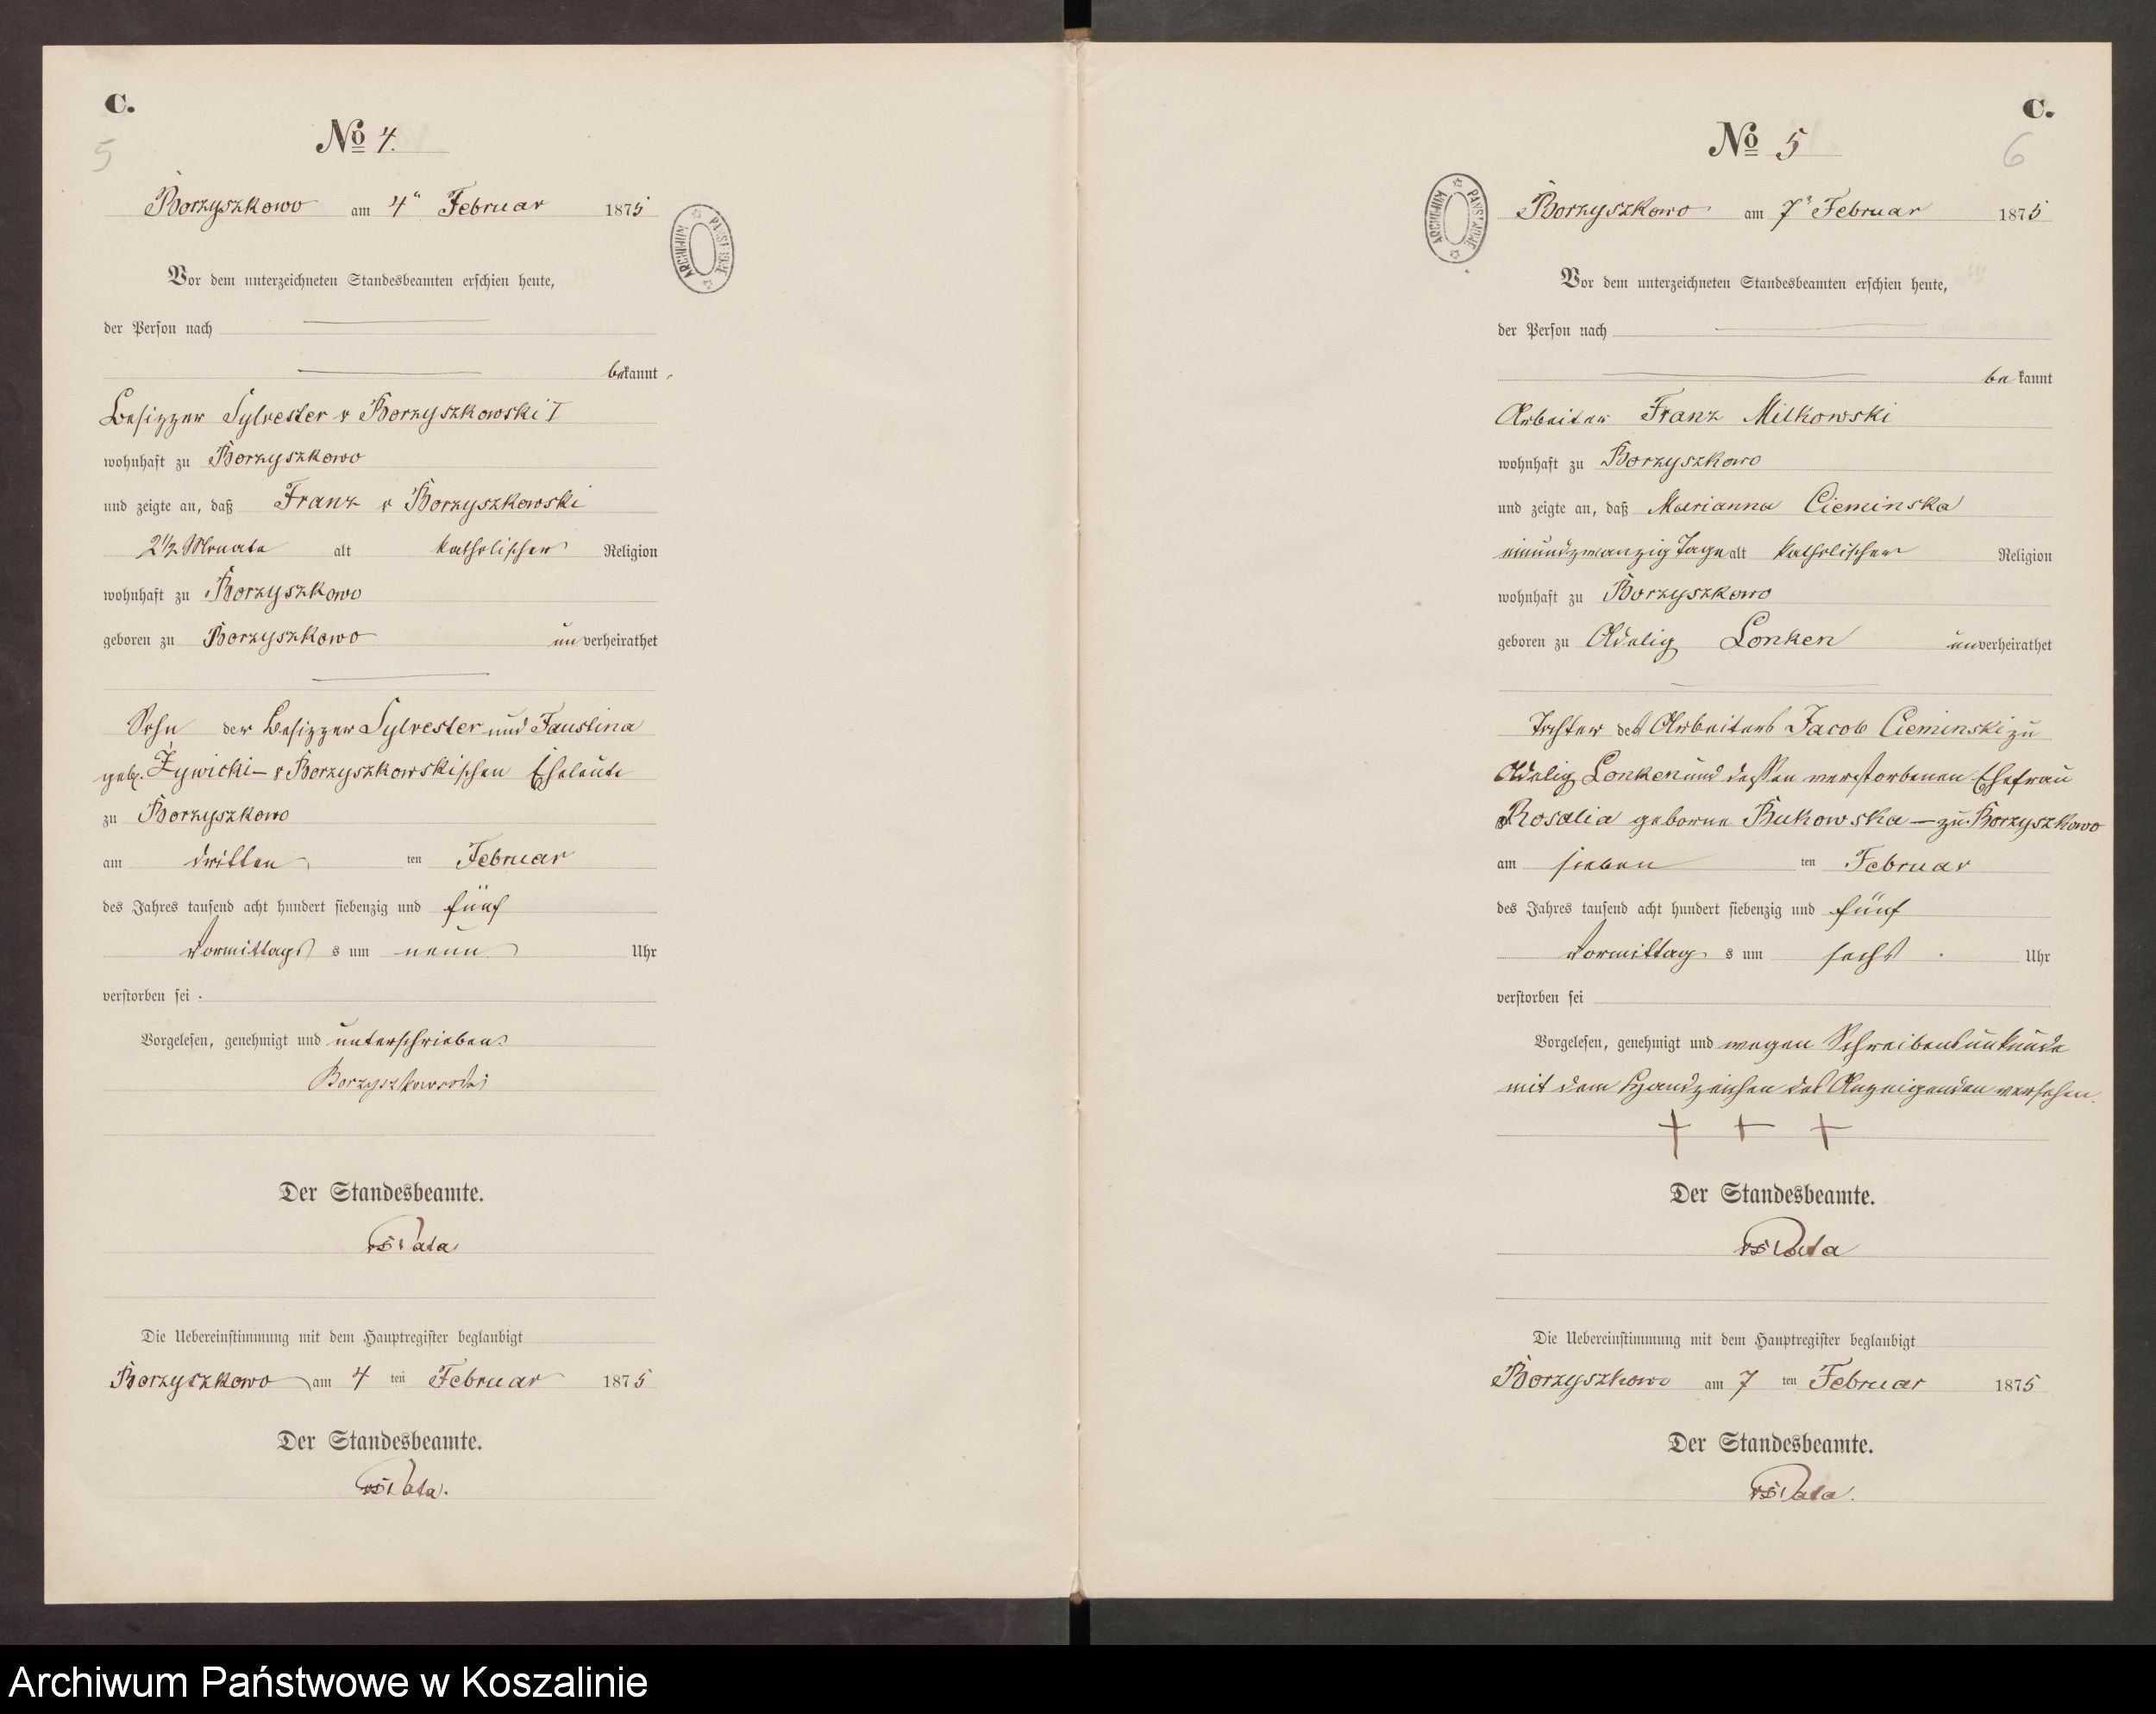 C.
5
No 4.
Borzyszkowo am 4ten Februar 1875
ARCHIWUM PAŃSTWOWE
Vor dem unterzeichneten Standesbeamten erschien heute,
der Person nach
bekannt,
Besizzer Sylvester v Borzyszkowski I
wohnhaft zu Borzyszkowo
und zeigte an, daß Franz v Borzyszkowski
2½ Monate alt katholischer Religion
wohnhaft zu Borzyszkowo
geboren zu Borzyszkowo unverheirathet
Sohn der Besizzer Sylvester und Faustina
geb. Żywicki – v Borzyszkowskischen Eheleute
zu Borzyszkowo
am dritten ten Februar
des Jahres tausend acht hundert siebenzig und fünf
Vormittags s um neun Uhr
verstorben sei.
Vorgelesen, genehmigt und unterschrieben
Borzyszkowski
Der Standesbeamte.
Die Uebereinstimmung mit dem Hauptregister beglaubigt
Borzyszkowo am 4 ten Februar 1875
Der Standesbeamte.
C.
6
No 5
ARCHIWUM PAŃSTWOWE
Borzyszkowo am 7ten Februar 1875
Vor dem unterzeichneten Standesbeamten erschien heute,
der Person nach
bekannt
Arbeiter Franz Milkowski
wohnhaft zu Borzyszkowo
und zeigte an, daß Marianna Cieminska
einundzwanzig Tage alt katholischer Religion
wohnhaft zu Borzyszkowo
geboren zu Adelig Lonken unverheirathet
Tochter des Arbeiters Jacob Cieminski zu
Adelig Lonken und dessen verstorbenen Ehefrau
Rosalia geborne Bukowska – zu Borzyszkowo
am sieben ten Februar
des Jahres tausend acht hundert siebenzig und fünf
Vormittag s um sechs Uhr
verstorben sei
Vorgelesen, genehmigt und wegen Schreibensunkunde
mit dem Handzeichen des Anzeigenden versehen.
+ + +
Der Standesbeamte.
Die Uebereinstimmung mit dem Hauptregister beglaubigt
Borzyszkowo am 7 ten Februar 1875
Der Standesbeamte.
Archiwum Państwowe w Koszalinie